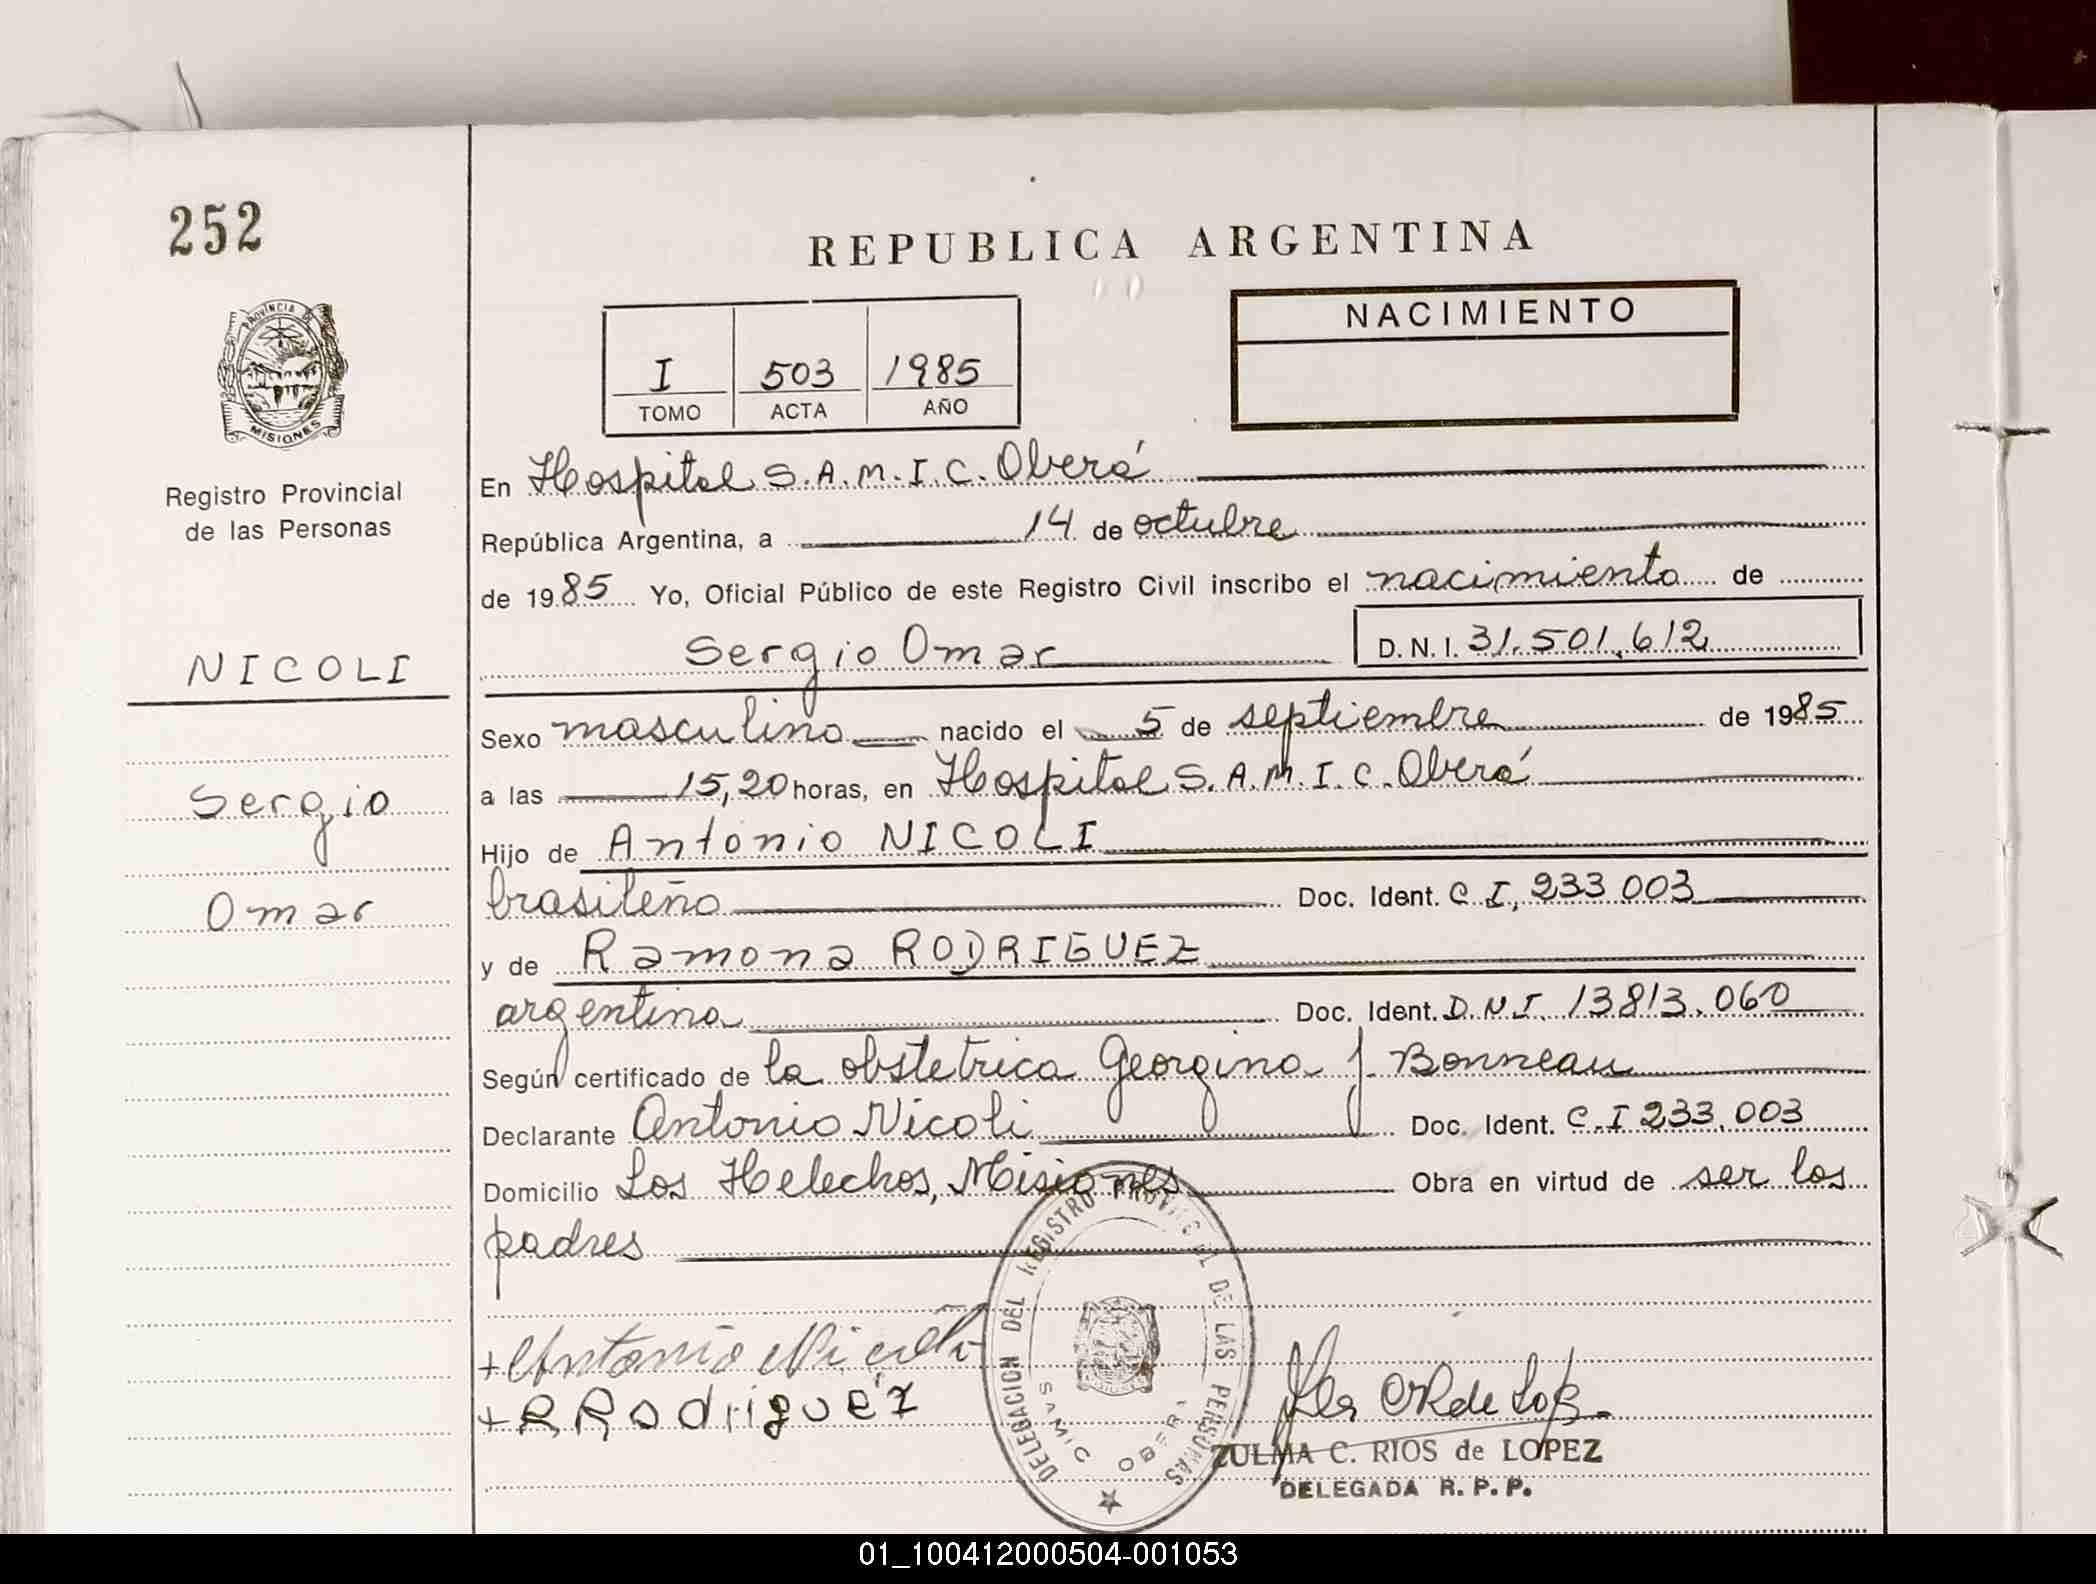 252
PROVINCIA DE
MISIONES
Registro Provincial
de las Personas
NICOLI
Sergio
Omar
REPUBLICA ARGENTINA
I 503 1985
TOMO ACTA AÑO
NACIMIENTO
En Hospital S.A.M.I.C. Oberá
República Argentina, a 14 de octubre
de 1985 Yo, Oficial Público de este Registro Civil inscribo el nacimiento de
Sergio Omar D.N.I. 31.501.612
Sexo masculino nacido el 5 de septiembre de 1985
a las 15,20 horas, en Hospital S.A.M.I.C. Oberá
Hijo de Antonio NICOLI
brasileño Doc. Ident. C.I. 233.003
y de Ramona RODRIGUEZ
argentina Doc. Ident. D.N.I. 13813.060
Según certificado de la obstetrica Georgina J. Bonneau
Declarante Antonio Nicoli Doc. Ident. C.I 233.003
Domicilio Los Helechos, Misiones Obra en virtud de ser los
padres
+ Antonio Nicoli
+ R Rodriguez
DELEGACION DEL REGISTRO PROVINCIAL DE LAS PERSONAS
SAMIC OBERA
ZULMA C. RIOS de LOPEZ
DELEGADA R.P.P.
01_100412000504-001053